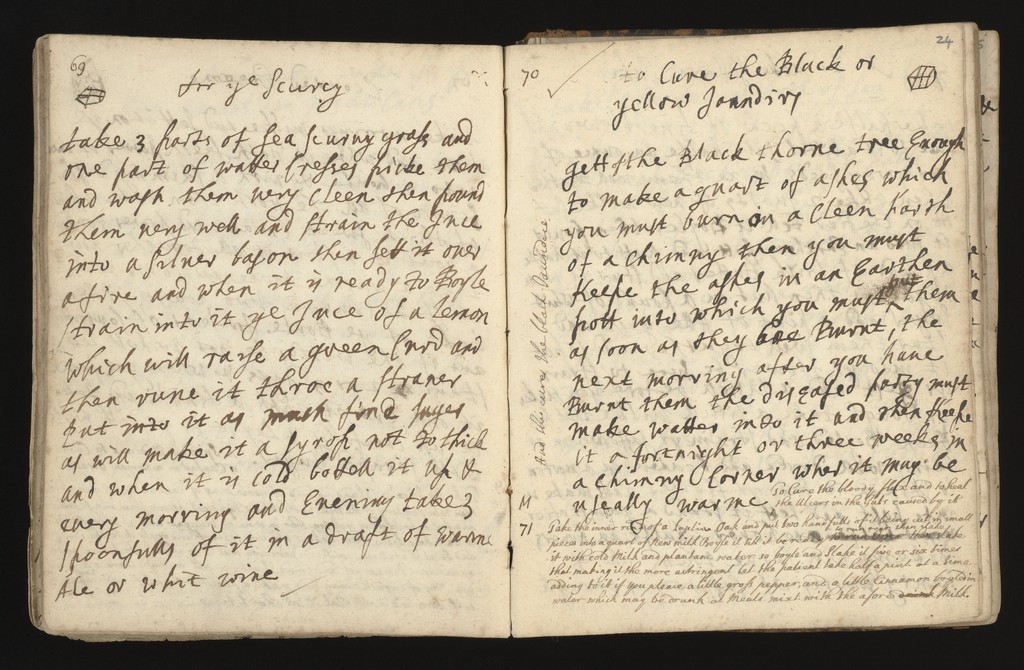 69
for ye Scurvy
take 3 parts of Sea scurvy grass and
one part of watter Cresses picke them
and wash them very Cleen then pound
them very well and strain the Juce
into a silver bason then sett it over
a fire and when it is ready to Boyle
strain into it ye Juce of a lemon
which will raise a green Curd and
then rune it throe a straner
put into it as much fine suger
as will make it a syrop not to thick
and when it is cold bottell it up &
every morning and Evening take 3
spoonfulls of it in a draft of warme
Ale or whit wine
24
70
to Cure the Black or
yellow Jaundirs
gett of the Black thorne tree Enough
to make a quart of ashes which
you must burn in a Cleen harth
of a Chimny then you must
keepe the ashes in an Earthen
pott into which you must put them
as soon as they are Burnt, the
next morning after you have
Burnt them the diseased party must
make watter into it and then keepe
it a fortnight or three weekes in
a Chimny Corner wher it may be
useally warme
to Cure the bloody flux and to heal
the Ulcers in the Guts caused by it
71
Take the inner rind of a Oak and put two handfulls of it being cut in small
pieces into a quart of New milk Boyle it till it be ready to run over then slake
it with cold Milk and plantane water so boyle and slake it five or six times
that making it the more astringent let the patient take half a pint at a time
adding to it if you please a little gross pepper, and a little Cinnamon boyled in
water which may be drank at Meals mixt with the afore Milk.